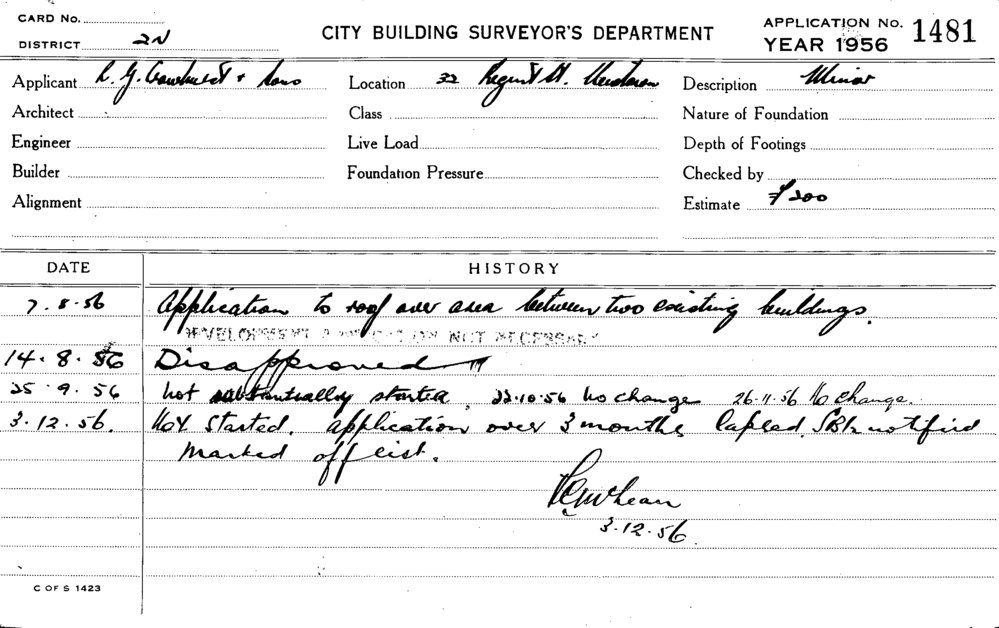 CARD No.
DISTRICT 2N
CITY BUILDING SURVEYOR'S DEPARTMENT
APPLICATION No. 1481
YEAR 1956
Applicant R. G. Crowhurst + Sons
Location 32 Regent St.
Description Minor
Architect
Class
Nature of Foundation
Engineer
Live Load
Depth of Footings
Builder
Foundation Pressure
Checked by
Alignment
Estimate £200
DATE
HISTORY
7.8.56 Application to roof over area between two existing buildings.
DEVELOPMENT APPLICATION NOT NECESSARY
14.8.56 Disapproved
25.9.56 Not substantially started, 22.10.56 No change 26.11.56 No change.
3.12.56. Not started. Application over 3 months lapsed. notified
Marked off list.
3.12.56
C OF S 1423